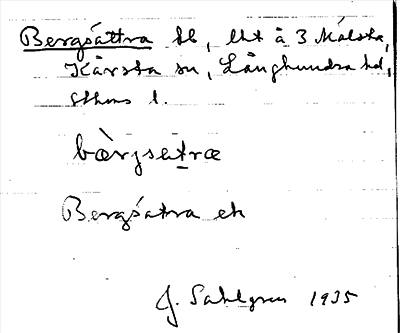 Bergsättra tb, lht å 3 Målsta,
Kårsta sn, Långhundra hd,
Sthms l.
bærjsetræ
Bergsatra ek
J. Sahlgren 1935